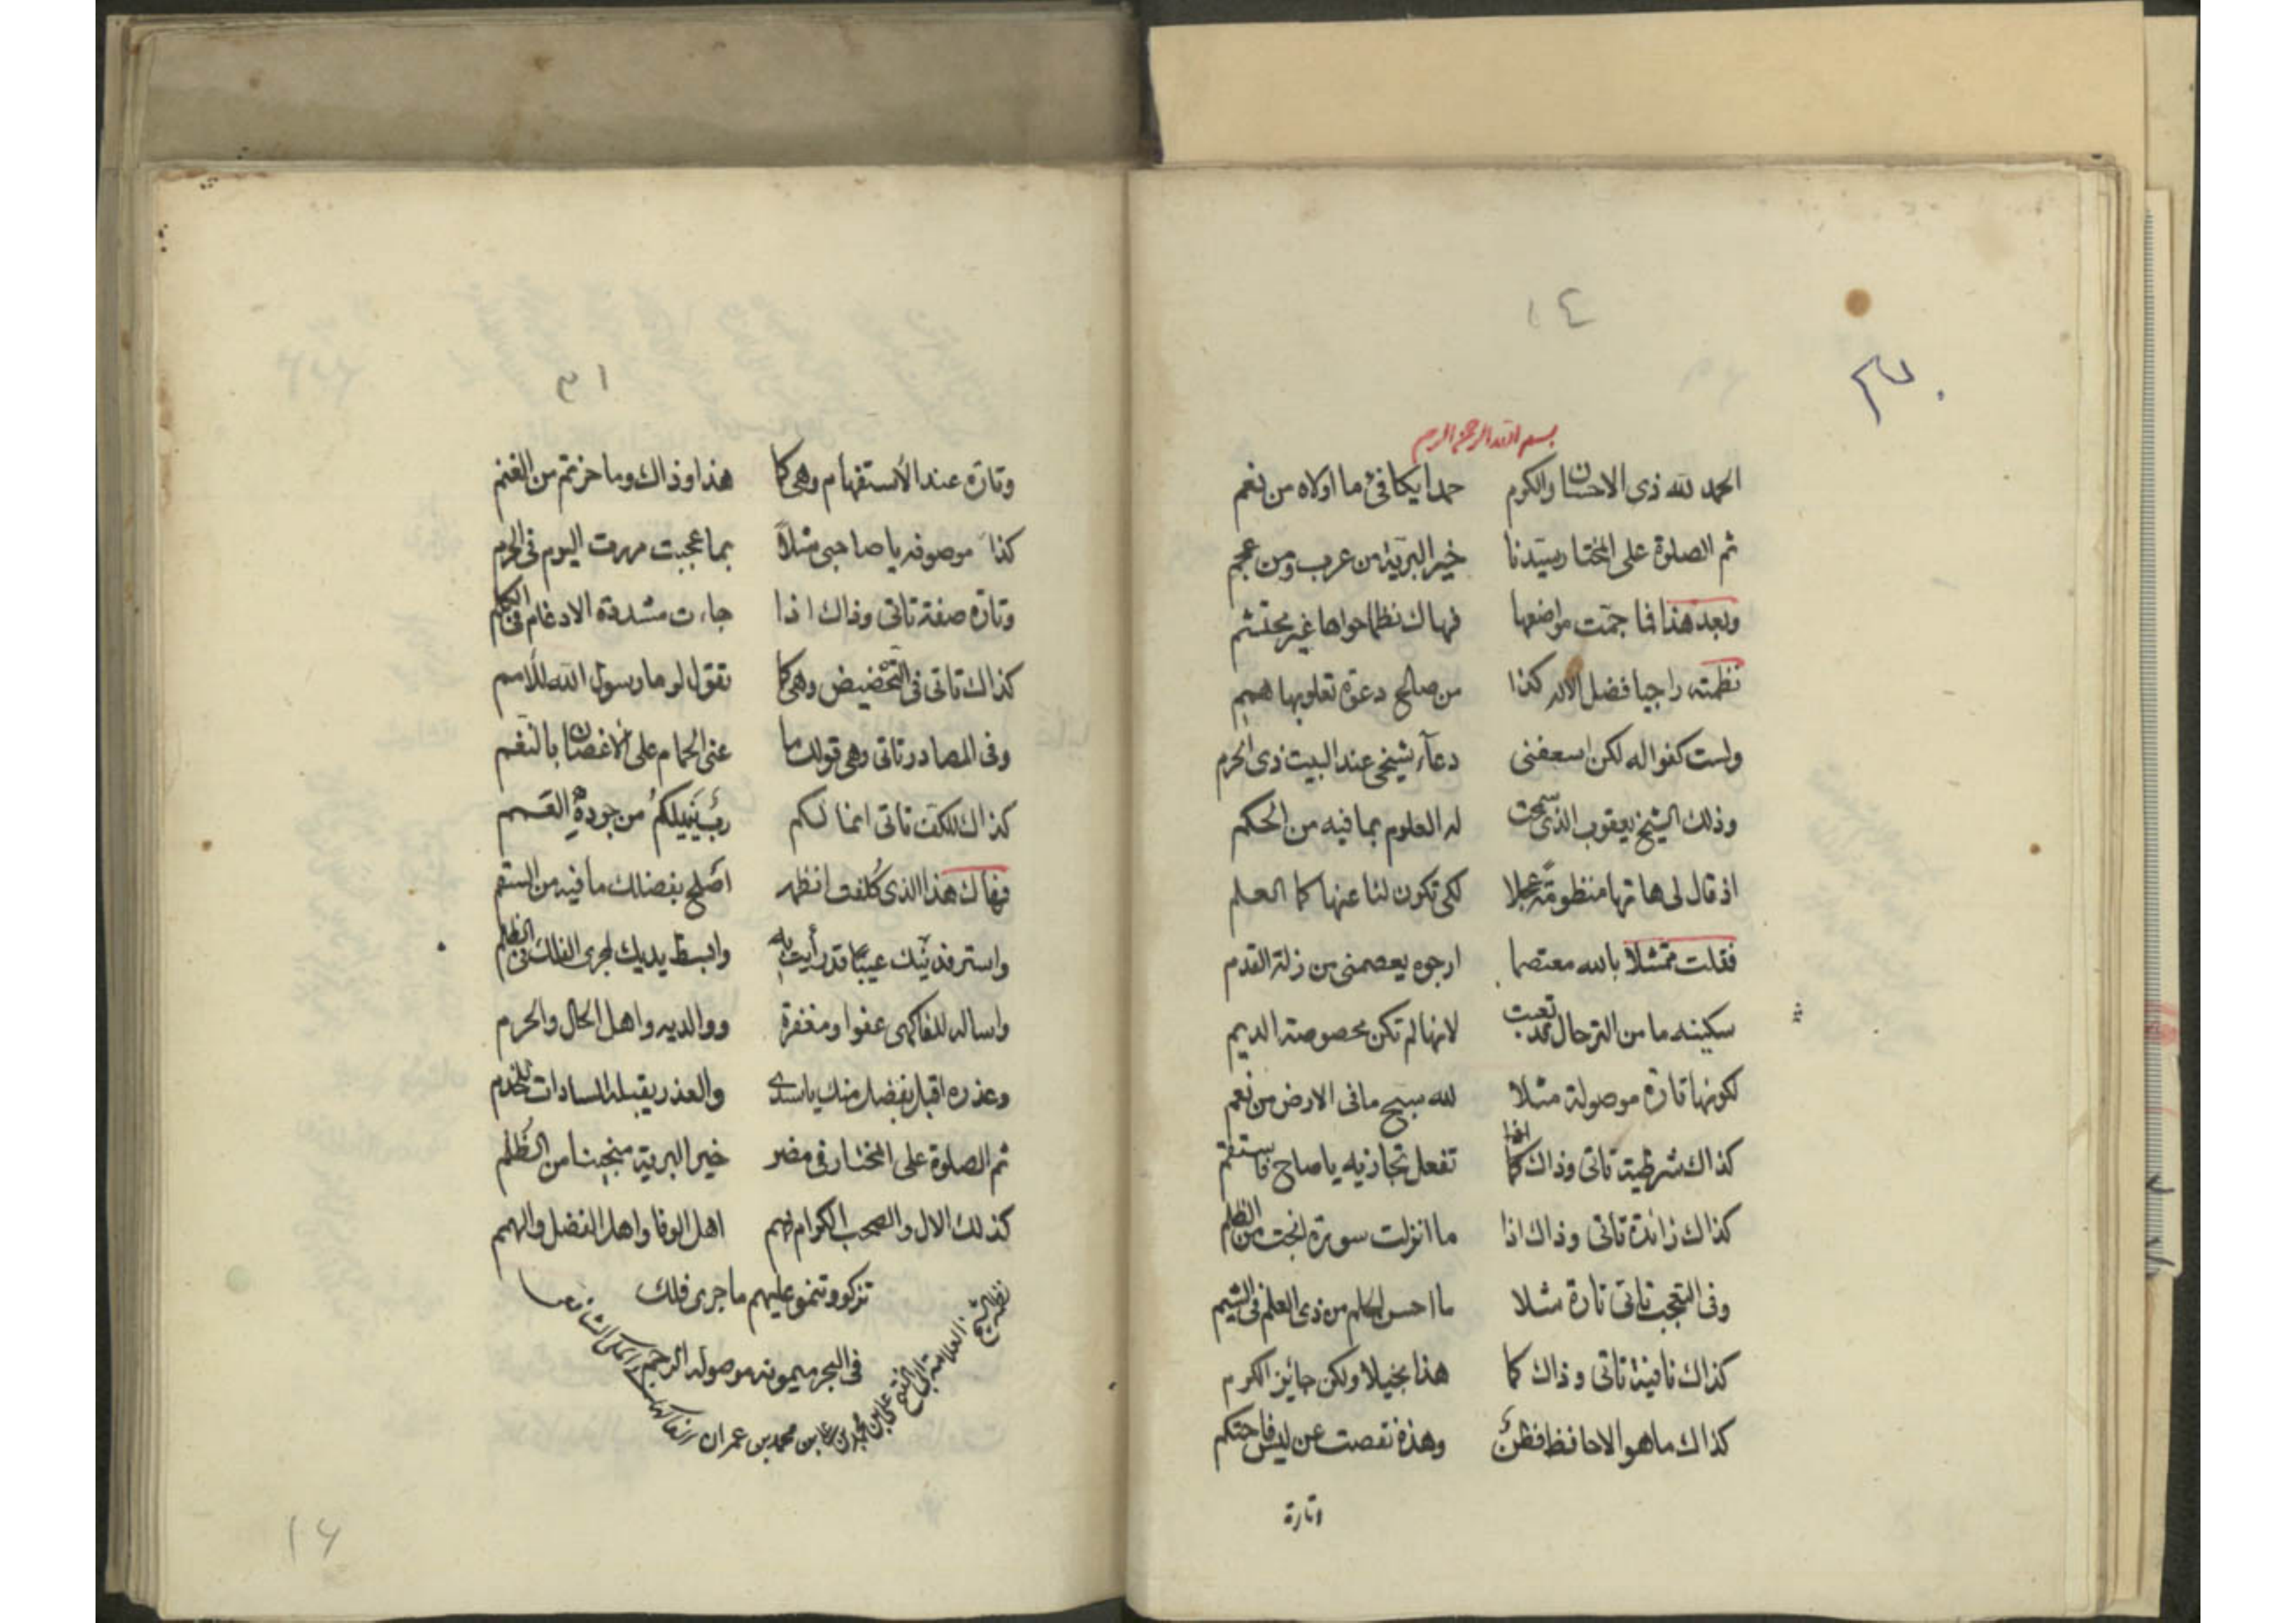 ١٤
٣٠
بسم الله الرحمن الرحيم
الحمد لله ذى الاحسان والكرم حمدا يكافئ ما اولاه من نعم
ثم الصلوة على المختار سيدنا خير البرية من عرب ومن عجم
وبعد هذا فما جمت مواضعها فهاك نظما حواها غير محتشم
نظمته راجيا فضل الاله كذا من صالح دعوة تعلو بها همم
ولست كفوا له لكن اسعفنى دعآء شيخى عند البيت ذى الحرم
وذلك الشيخ يعقوب الذى سمحت له العلوم بما فيه من الحكم
اذ قال لى هاتها منظومة عجلا لكى تكون لنا عنها كما العلم
فقلت ممتثلا بالله معتصما ارجوه يعصمنى من زلة القدم
سكينه ما من الترحال قد تعبت لانها لم تكن مخصوصة الديم
لكونها تارة موصولة مثلا لله سبح ما فى الارض من نعم
كذاك شرطية تاتى وذاك كما اذا تفعل تجازيه يا صاح فاستقم
كذاك زائدة تاتى وذاك اذا ما انزلت سورة انجت من الظلم
وفى التعجب تاتى تارة مثلا ما احسن الحلم من ذى العلم فى الشيم
كذاك نافية تاتى وذاك كما هذا بخيلا ولكن حايز الكرم
كذاك ما هو الا حافظ فظن وهذه نقصت عن ليس فاحتكم
وتارة
٣١
وتارة عند الأستفهام وهى كما هذا وذاك وما حزتم من الغنم
كذا موصوفه يا صاحبى مثلا بما عجبت مررت اليوم فى الحرم
وتارة صفة تاتى وذاك اذا جاءت مشددة الادغام فى الكلم
كذاك تاتى فى التحضيض وهى كما تقول لو ما رسول الله للأمم
وفى المصادر تاتى وهى قولك ما غنى الحمام على الاغصان بالنغم
كذاك للكف تاتى انما لكم رب ينيلكم من جوده القسم
فهاك هذا الذى كلفت انظمه اصلح بفضلك ما فيه من السقم
واستر فديتك عيبًا قد رأيت به وابسط يديك لمجرى الفلك فى الظلم
واساله للفاكهى عفوا ومغفرة ووالديه واهل الحال والحرم
وعذره اقبل بفضل منك يا سندى والعذر يقبله السادات للخدم
ثم الصلوة على المختار فى مضر خير البرية منجينا من الظلم
كذلك الال والصحب الكرام فهم اهل الوفا واهل الفضل والهمم
تزكو وتنمو عليهم ما جرى فلك
فى البحر ميمونة موصولة الرحم
نظم الشيخ العلامة على بن محمد بن على بن محمد بن عمران الفاكهانى المكى الشافعى
١٦